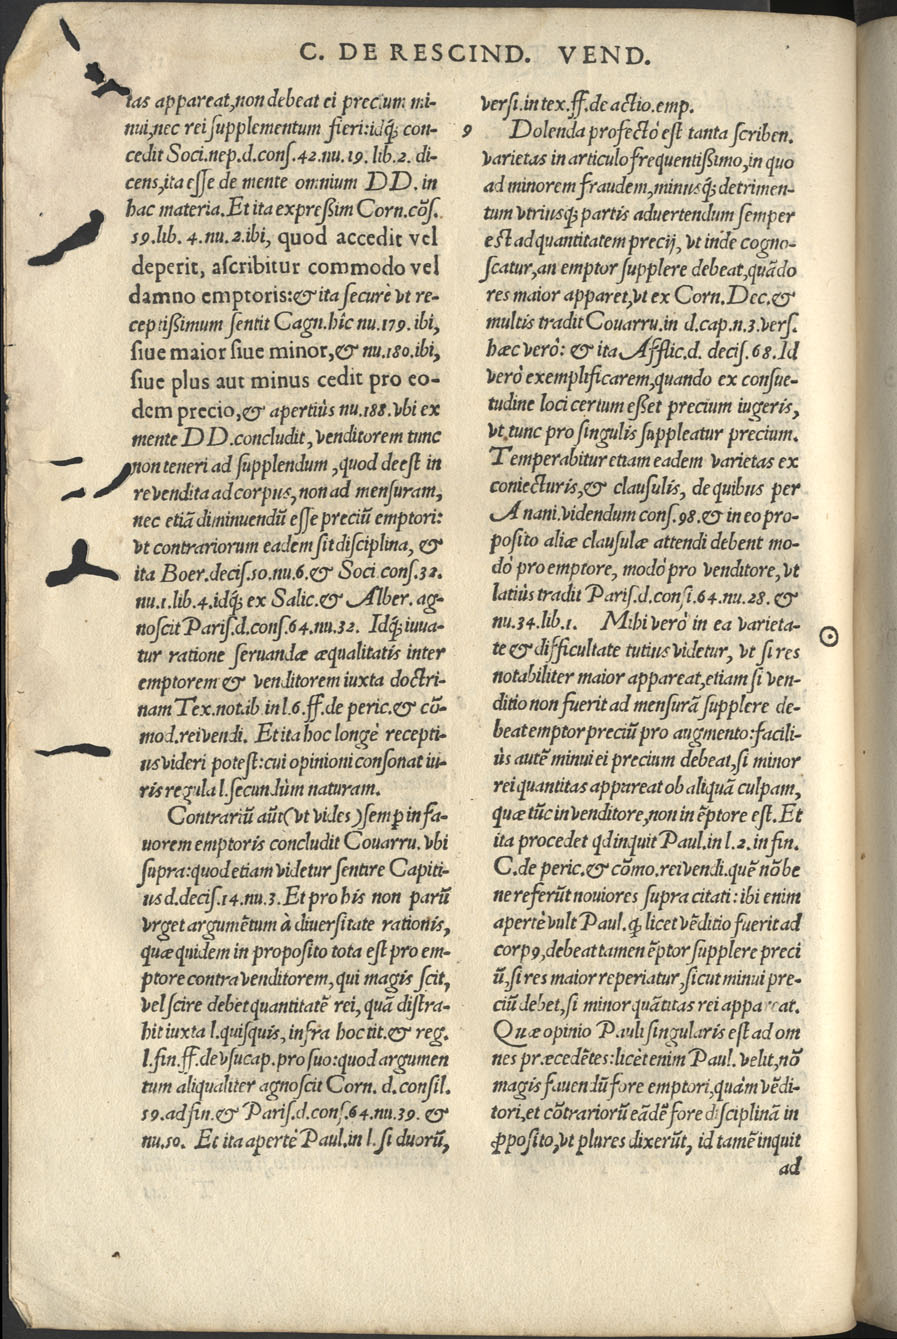 C. DE RESCIND. VEND.
tas appareat, non debeat ei precium mi-
nui, nec rei supplementum fieri: idq́; con-
cedit Soci.nep.d.cons.42.nu.19. lib.2. di-
cens, ita esse de mente omnium DD. in
hac materia. Et ita expreßim Corn.cõs.
59.lib. 4.nu.2.ibi, quod accedit vel
deperit, ascribitur commodo vel
damno emptoris: & ita securè vt re-
ceptißimum sentit Cagn.hîc nu.179.ibi,
siue maior siue minor, & nu.180.ibi,
siue plus aut minus cedit pro eo-
dem precio, & apertiùs nu.188.vbi ex
mente DD.concludit, venditorem tunc
non teneri ad supplendum, quod deest in
re vendita ad corpus, non ad mensuram,
nec etiã diminuendũ esse preciũ emptori:
vt contrariorum eadem sit disciplina, &
ita Boer.decis.50.nu.6.& Soci.cons.32.
nu.1.lib.4.idq́; ex Salic.& Alber. ag-
noscit Paris.d.cons.64.nu.32. Idq́; iuua-
tur ratione seruandæ æqualitatis inter
emptorem & venditorem iuxta doctri-
nam Tex.not.ib.in l.6.ff.de peric.& cõ-
mod.rei vendi. Et ita hoc longè recepti-
us videri potest: cui opinioni consonat iu-
ris regula l.secundùm naturam.
Contrariũ aũt (vt vides) semꝑ in fa-
uorem emptoris concludit Couarru.vbi
supra: quod etiam videtur sentire Capiti-
us d.decis.14.nu.3. Et pro his non parũ
vrget argumẽtum à diuersitate rationis,
quæ quidem in proposito tota est pro em-
ptore contra venditorem, qui magis scit,
vel scire debet quantitatẽ rei, quã distra-
hit iuxta l.quisquis, infra hoc tit.& reg.
l.fin.ff.de vsucap.pro suo: quod argumen
tum aliqualiter agnoscit Corn. d.consil.
59.ad fin.& Paris.d.cons.64.nu.39. &
nu.50. Et ita apertè Paul.in l. si duorũ,
versi.in tex.ff.de actio.emp.
9 Dolenda profectò est tanta scriben.
varietas in articulo frequentißimo, in quo
ad minorem fraudem, minusq́; detrimen-
tum vtriusq́; partis aduertendum semper
est ad quantitatem precij, vt inde cogno-
scatur, an emptor supplere debeat, quãdo
res maior apparet, vt ex Corn. Dec.&
multis tradit Couarru.in d.cap.n.3.vers.
hæc verò: & ita Afflic.d. decis.68.Id
verò exemplificarem, quando ex consue-
tudine loci certum eßet precium iugeris,
vt tunc pro singulis suppleatur precium.
Temperabitur etiam eadem varietas ex
coniecturis, & clausulis, de quibus per
Anani.videndum cons.98.& in eo pro-
posito aliæ clausulæ attendi debent mo-
dò pro emptore, modò pro venditore, vt
latiùs tradit Paris.d.consi.64.nu.28. &
nu.34.lib.1. Mihi verò in ea varieta-
te & difficultate tutius videtur, vt si res
notabiliter maior appareat, etiam si ven-
ditio non fuerit ad mensurã supplere de-
beat emptor preciũ pro augmento: facili-
ùs autẽ minui ei precium debeat, si minor
rei quantitas appareat ob aliquã culpam,
quæ tũc in venditore, non in ẽptore est. Et
ita procedet qd inquit Paul.in l.2.in fin.
C.de peric.& cõmo.rei vendi.quẽ nõ be
ne referũt nouiores supra citati: ibi enim
apertè vult Paul. q́; licet vẽditio fuerit ad
corpꝰ, debeat tamen ẽptor supplere preci
ũ, si res maior reperiatur, sicut minui pre-
ciũ debet, si minor quãtitas rei appareat.
Quæ opinio Pauli singularis est ad om
nes præcedẽtes: licet enim Paul. velit, nõ
magis fauendũ fore emptori, quàm vẽdi-
tori, et cõtrariorũ eãdẽ fore disciplinã in
ꝓposito, vt plures dixerũt, id tamẽ inquit
ad